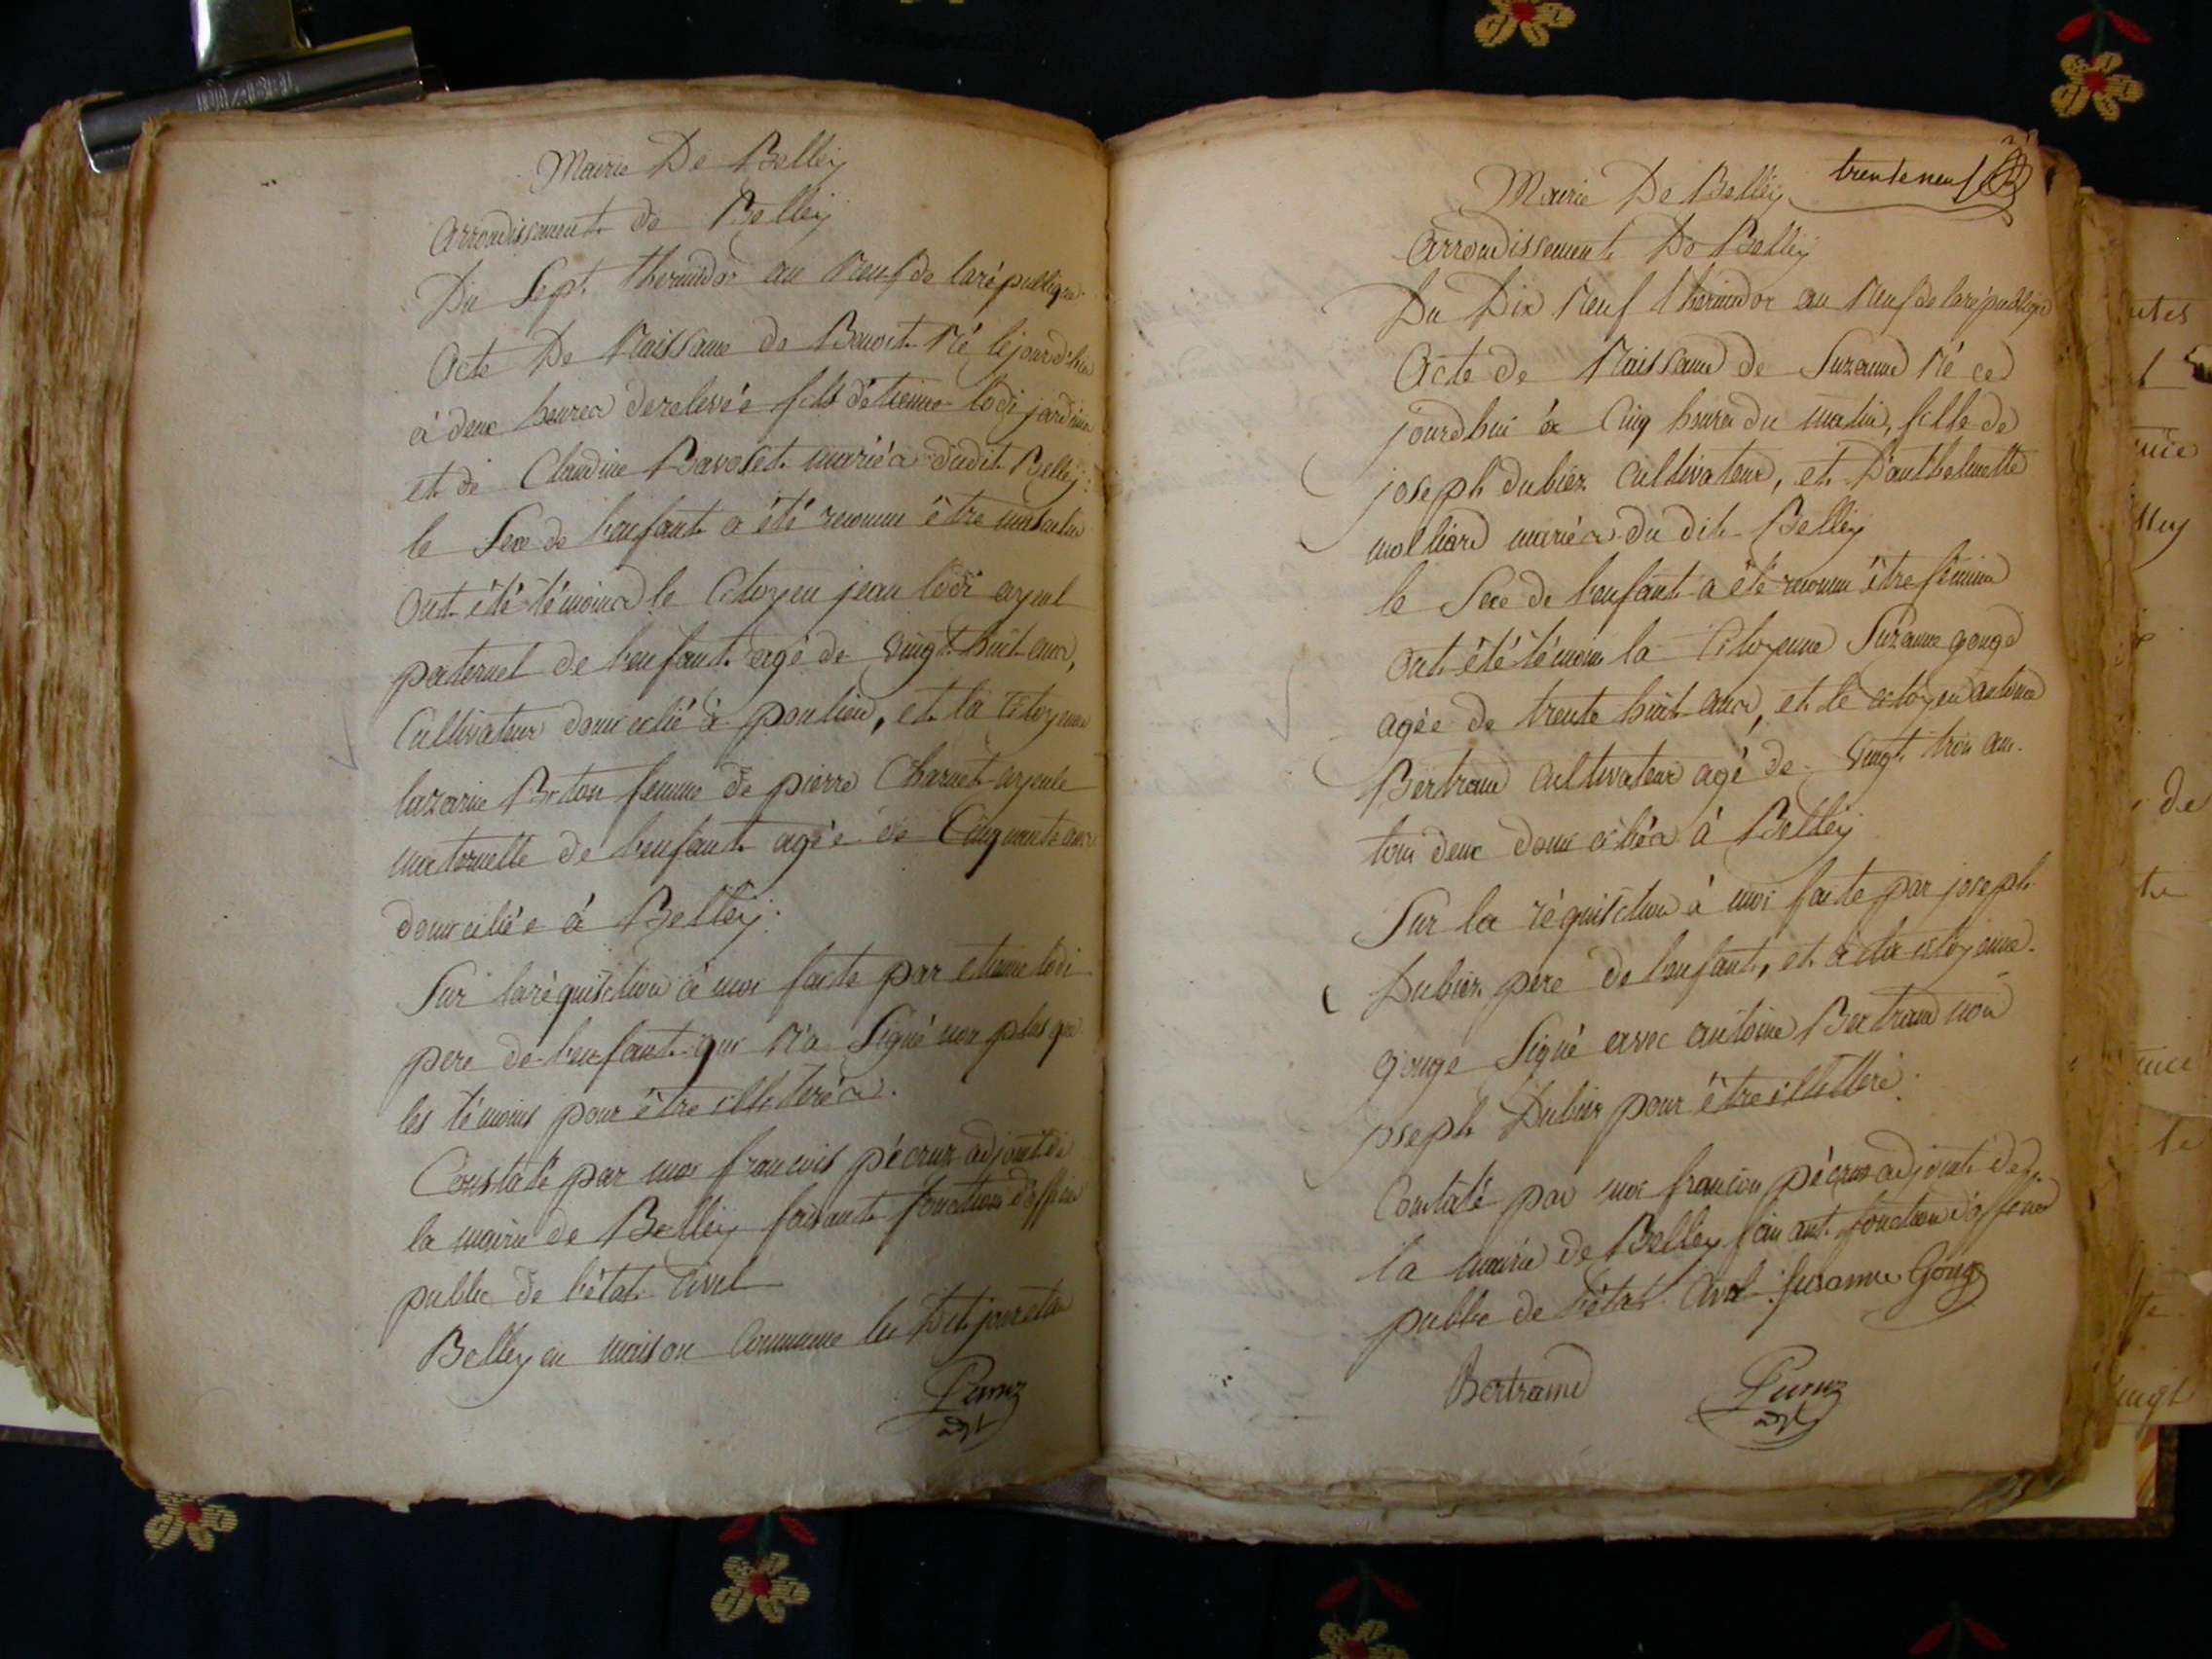 Mairie De Belleÿ
Arrondissement de Belleÿ
Du Sept thermidor an Neuf de larépublique
Acte De Naissance de Benoit Né lejourd'hui
à deux heures derelevée fils d'etienne lodi jardinier
et de Claudine mariés dudit Belleÿ:
le Sexe de l'enfant a été reconnu être masculin
Ont été témoins le Citoyen jean lodi ayeul
paternel de l'enfant agé de vingt huit ans,
Cultivateur domicilié à poulieu, et la Citoyenne
lazarine Breton femme de pierre Charvet ayeule
maternelle de l'enfant agée de Cinquante ans
domiciliée à Belleÿ:
Sur laréquisition à moi faite par etienne lodi
pere de l'enfant qui n'a Signé non plus que
les témoins pour être illitérés.
Constaté par moi francois pécruz adjoint de
la mairie de Belleÿ faisant fonction d'officier
public de l'état Civil
Belley en maison Commune les Dit jour et an
adjt
trente neuf
Mairie De Belleÿ
Arrondissement De Belleÿ
Du Dix Neuf thermidor an Neuf de larépublique
Acte de Naissance de Suzanne Né ce
jourdhui à Cinq heures du matin, fille de
joseph dubiez Cultivateur, et D'anthelmette
molliard mariés du dit Belleÿ
le Sexe de l'enfant a été reconnu être féminin
Ont été témoins la Citoyenne Suzanne gouge
agée de trente huit ans, et le citoyen antoine
Bertrand Cultivateur agé de vingt trois ans.
tous deux domiciliés à Belleÿ
Sur la réquisition à moi faite par joseph
Dubiez pere de l'enfant, et à la citoyenne
gouge Signé avec antoine Bertrand non
joseph Dubiez pour être illittéré.
Constaté par moi francois pécruz adjoint de
la mairie de Belleÿ faisant fonction d'officier
public de l'état Civil Susanne Gouge
Bertrand
adjt